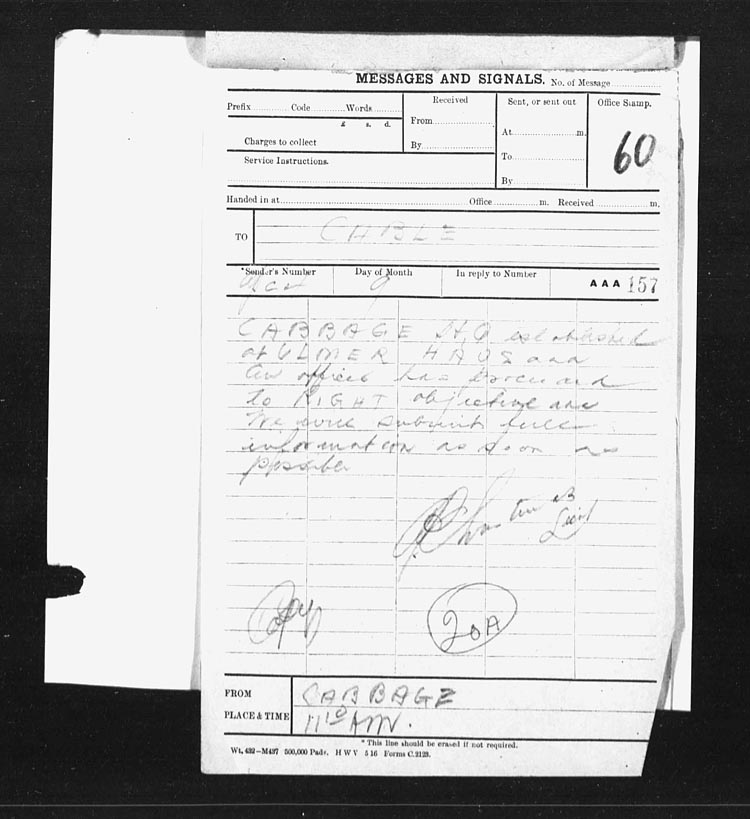 MESSAGES AND SIGNALS. No. of Message
Prefix Code Words
£ s. d.
Charges to collect
Service Instructions.
Received
From
By
Sent, or sent out
At m.
To
By
Office Stamp.
60
Handed in at Office m. Received m.
TO CABLE
*Sender's Number Day of Month In reply to Number AAA 157
9
CABBAGE H.Q established
at ULMER HAUS and
An officer has proceeded
to RIGHT objective and
We will submit full
information as soon as
possible
Lieut
20A
FROM CABBAGE
PLACE & TIME 11 10 AM.
* This line should be erased if not required.
Wt. 432—M437 500,000 Pads. H W V 5 16 Forms C.2123.